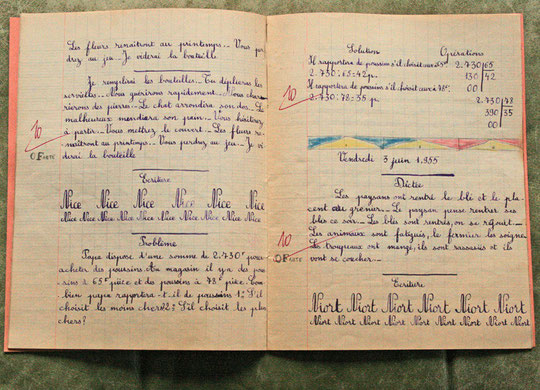 Les fleurs renaîtront au printemps... Vous per
drez au jeu. Je viderai la bouteille
Je remplirai les bouteilles... Tu déplieras les
serviettes... Nous guérirons rapidement... Nous char
rierons des pierres... Le chat arrondira son dos... Le
malheureux mendiera son pain... Vous hésiterez
à partir... Vous mettrez le couvert... Les fleurs re
naîtront au printemps... Vous perdrez au jeu... Je vi
derai la bouteille
10
0 Faute
Ecriture
Nice Nice Nice Nice Nice Nice
Nice Nice Nice Nice Nice Nice Nice Nice
Problème
Papa dispose d'une somme de 2.730f pour
acheter des poussins. Au magasin il y a des pous
sins à 65f pièce et des poussins à 78f pièce. Com
bien papa rapportera-t-il de poussins 1: S'il
choisit les moins chers 2: S'il choisit les plus
chers?
Solution Opérations
Il rapportera de poussins s'il choisit aux 65f
2.730:65=42 p.
Il rapportera de poussins s'il choisit aux 78f.
2.730:78=35 p.
2.730 65
130 42
00
2.730 78
390 35
00
10
Vendredi 3 juin 1.955
Dictée
Les paysans ont rentré le blé et le pla
cent au grenier. Le paysan pense rentrer ses
blés ce soir. Les blés sont rentrés, on se réjouit.
Les animaux sont fatigués, le fermier les soigne.
Les troupeaux ont mangé, ils sont rassasiés et ils
vont se coucher.
10
0 Faute
Ecriture
Niort Niort Niort Niort Niort Niort
Niort Niort Niort Niort Niort Niort Niort